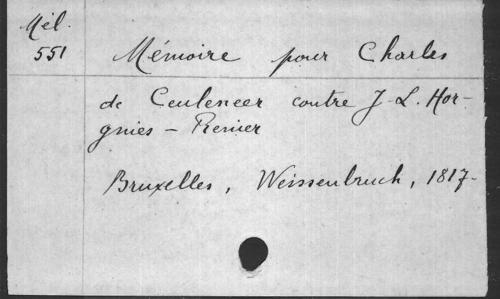 Mél.
551
Mémoire pour Charles
de Ceuleneer contre J-L. Hor-
gnies - Renier
Bruxelles, Weissenbruch, 1817-